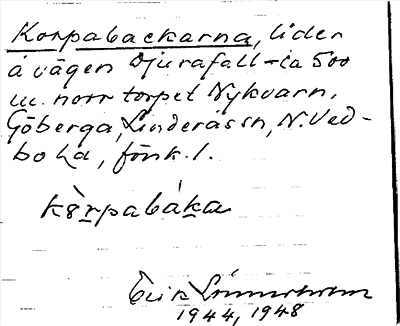 Korpabackarna, lider
å vägen Djurafall - ca 500
m. norr torpet Nykvarn,
Göberga, Linderås sn, N. Ved-
bo hd, Jönk. l.
kȯ̀rpabáka
Erik Linnerholm
1944, 1948